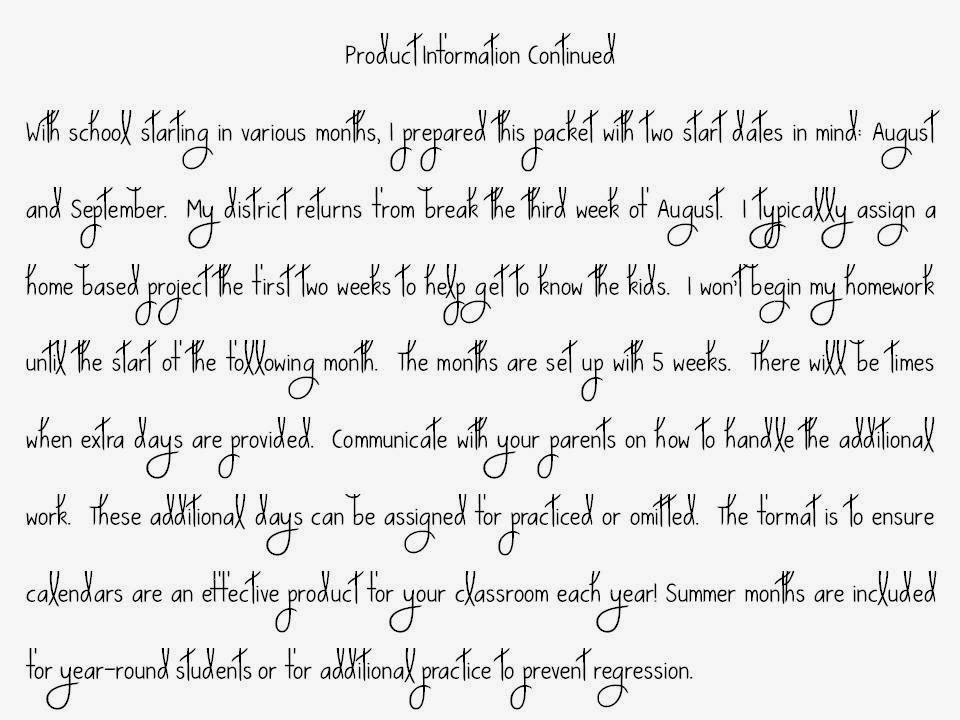 Product Information Continued
With school starting in various months, I prepared this packet with two start dates in mind: August
and September.  My district returns from break the third week of August.  I typically assign a
home based project the first two weeks to help get to know the kids.  I won't begin my homework
until the start of the following month.  The months are set up with 5 weeks.  There will be times
when extra days are provided.  Communicate with your parents on how to handle the additional
work.  These additional days can be assigned for practiced or omitted.  The format is to ensure
calendars are an effective product for your classroom each year! Summer months are included
for year-round students or for additional practice to prevent regression.